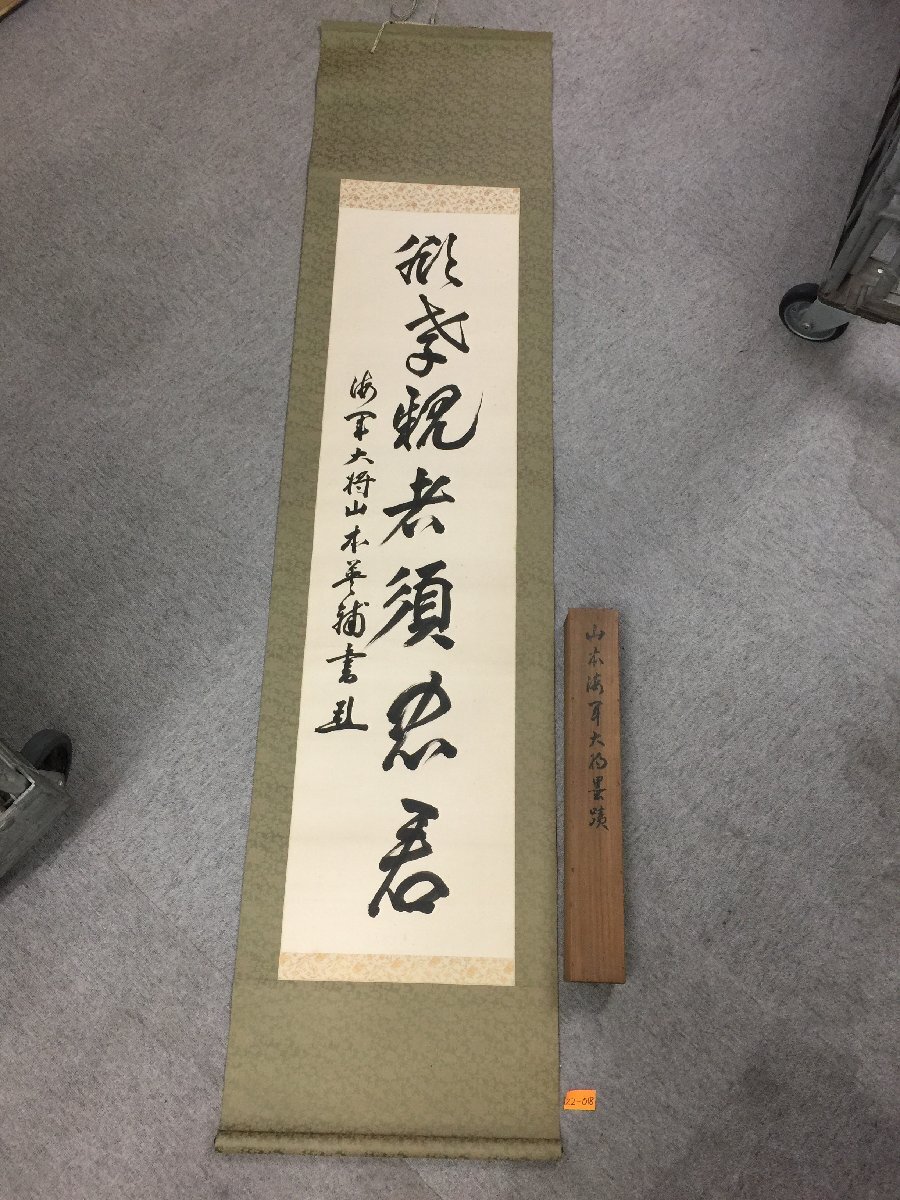 欲孝親者須忠君
海軍大将山本英輔書
山本海軍大将墨蹟
22-018